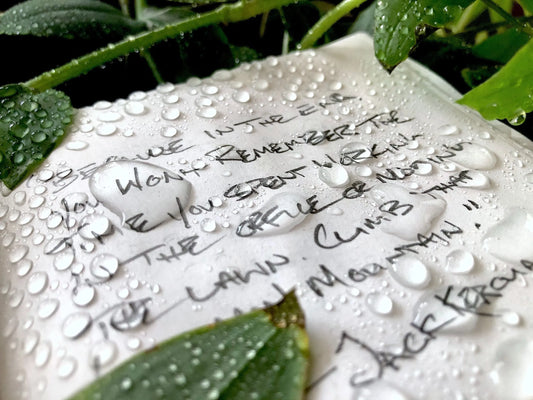 BECAUSE IN THE END
YOU WON'T REMEMBER THE
TIME YOU SPENT WORKING
IN THE OFFICE OR MOWING
THE LAWN. CLIMB THAT
MOUNTAIN."
- JACK KEROUA